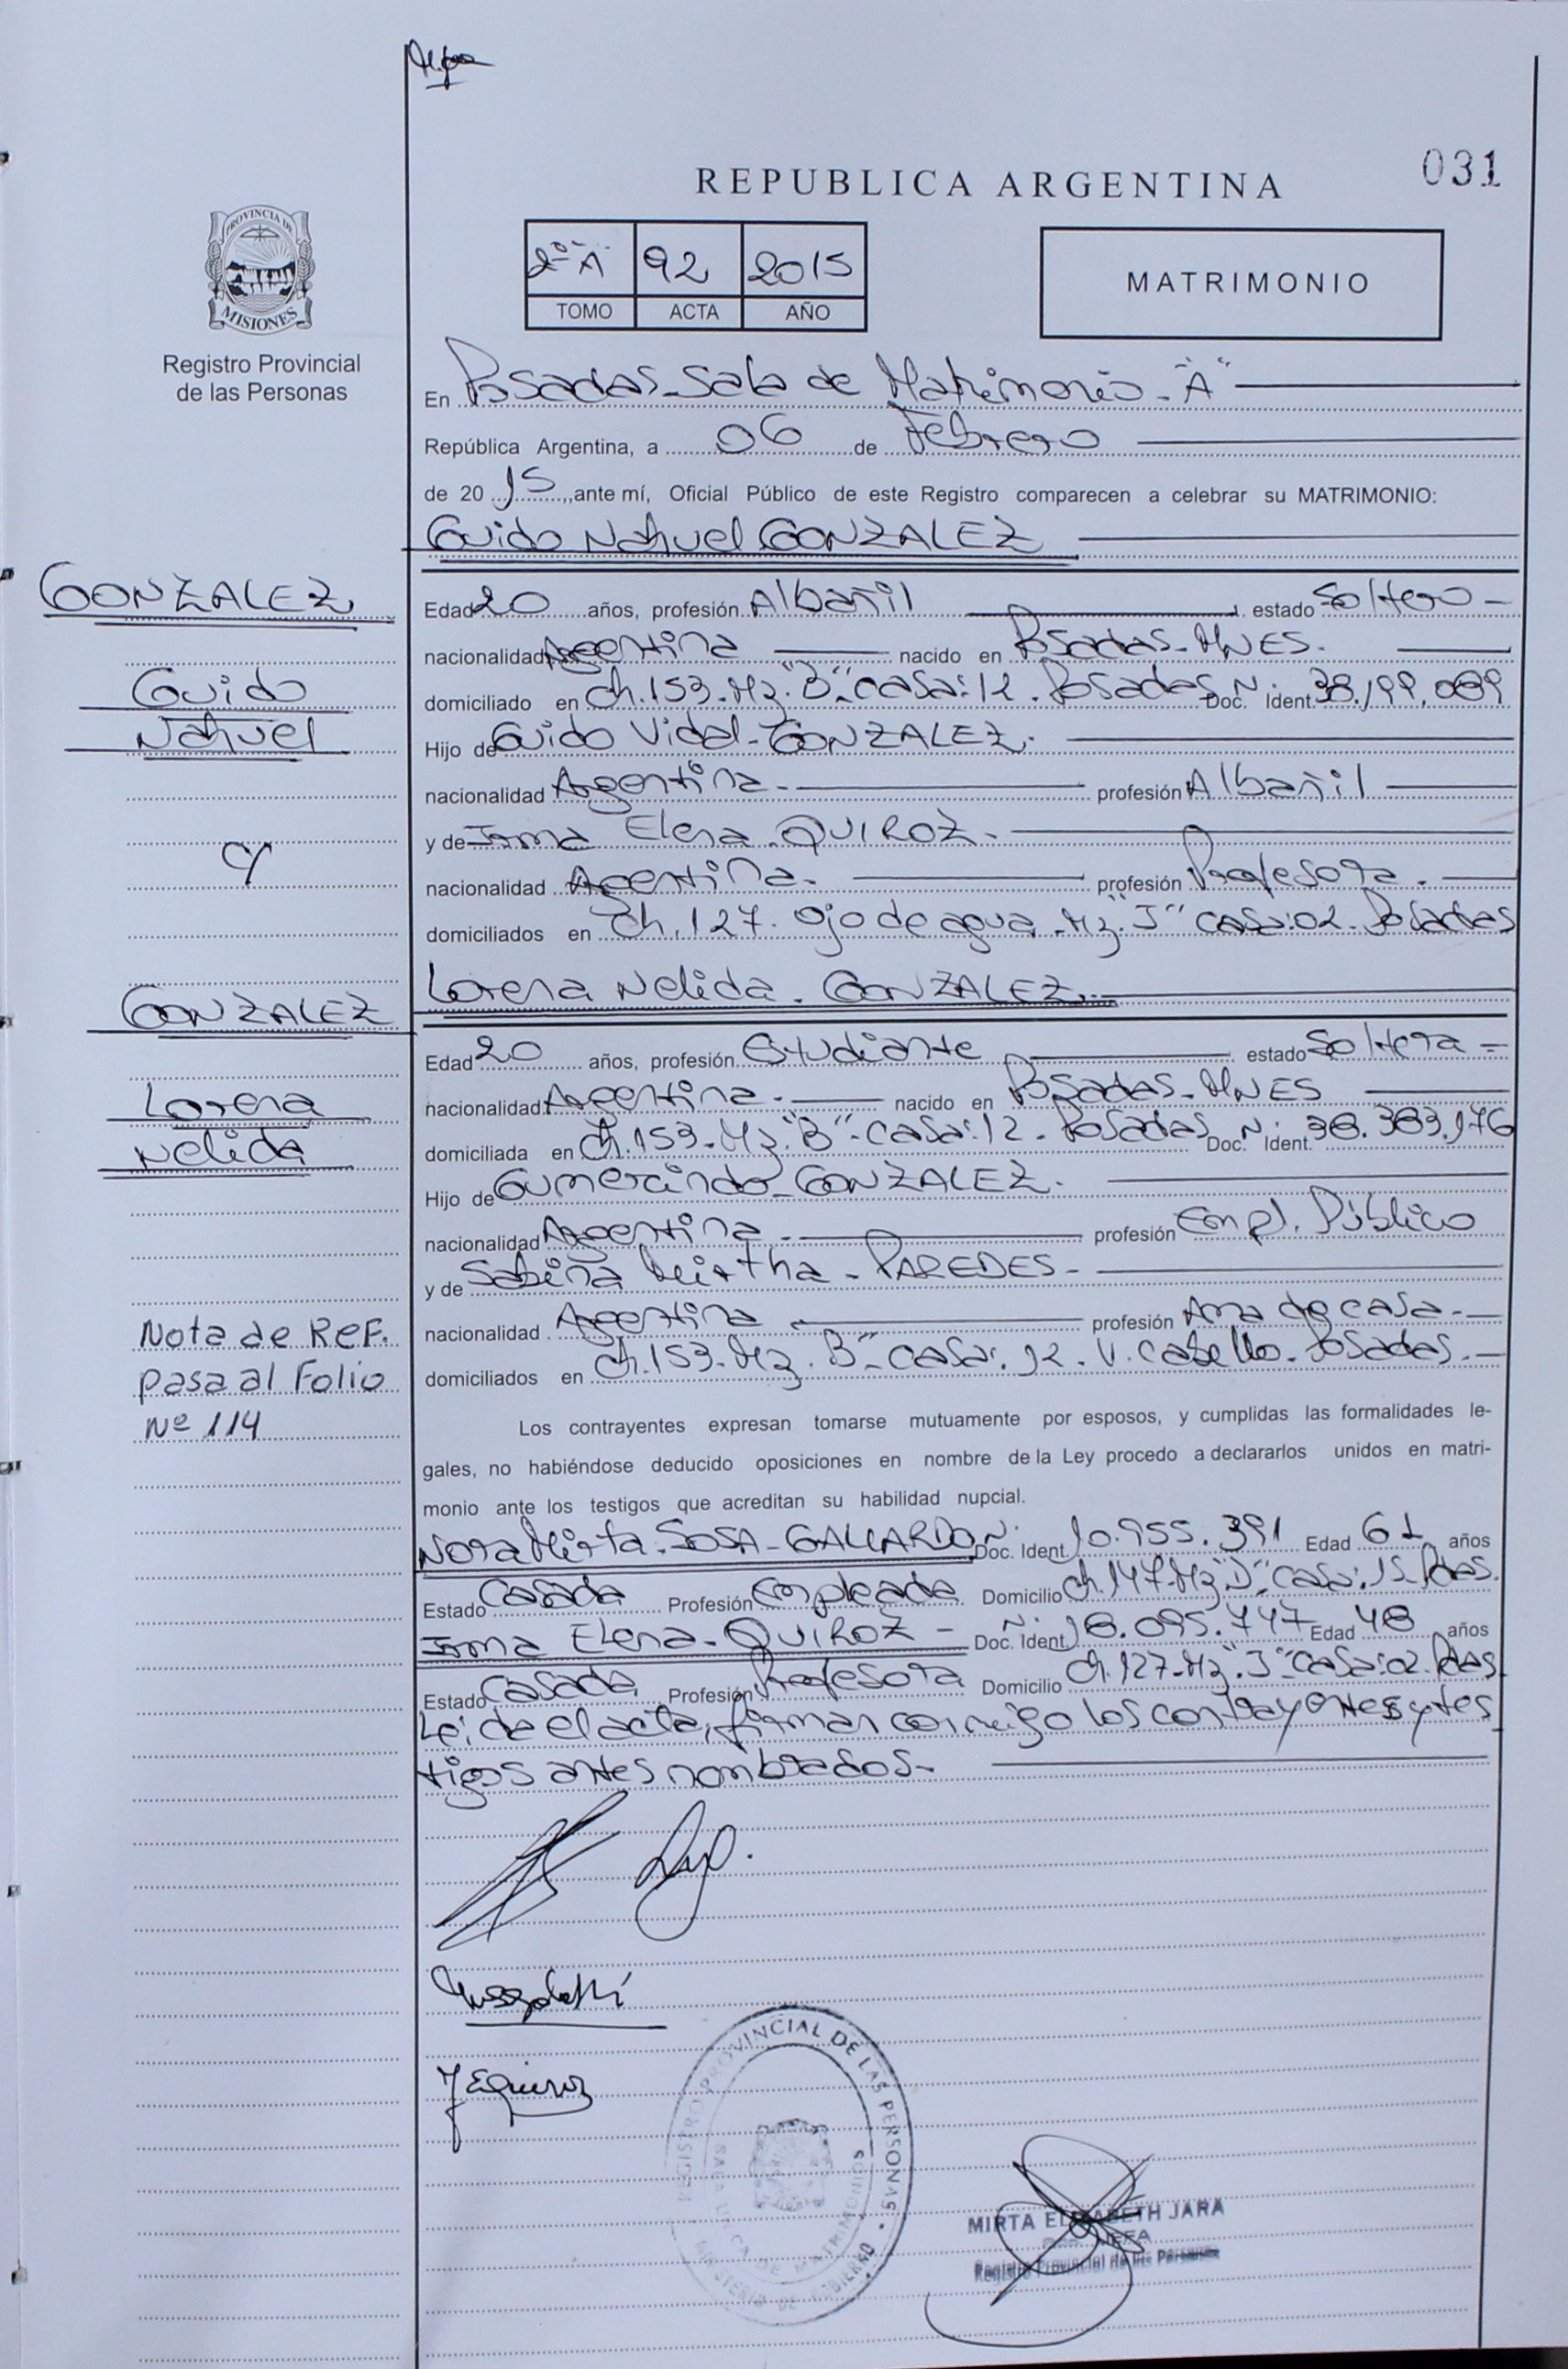 031
REPUBLICA ARGENTINA
PROVINCIA DE
MISIONES
Registro Provincial
de las Personas
2º "A" 92 2015
TOMO ACTA AÑO
MATRIMONIO
En Posadas - Sala de Matrimonio - "A"
República Argentina, a 06 de Febrero
de 2015, ante mí, Oficial Público de este Registro comparecen a celebrar su MATRIMONIO:
Guido Nahuel GONZALEZ
GONZALEZ
Guido
Nahuel
y
GONZALEZ
Lorena
Nelida
Nota de Ref.
pasa al Folio
Nº 114
Edad 20 años, profesión Albañil estado Soltero -
nacionalidad Argentina nacido en Posadas - MNES.
domiciliado en Ch. 153 - Mz. "B" - casa: 12 - Posadas Doc. Ident. N: 38.199.089
Hijo de Guido Vidal - GONZALEZ.
nacionalidad Argentina - profesión Albañil
y de Irma Elena - QUIROZ -
nacionalidad Argentina - profesión Profesora.
domiciliados en Ch. 127 - Ojo de agua - Mz. "J" casa: 02 - Posadas
Lorena Nelida - GONZALEZ. -
Edad 20 años, profesión Estudiante estado Soltera -
nacionalidad Argentina - nacido en Posadas - MNES
domiciliada en Ch. 153 - Mz. "B" - casa: 12 - Posadas Doc. Ident. N: 38.383.176
Hijo de Gumercindo - GONZALEZ.
nacionalidad Argentina - profesión Empl. Público
y de Sabina Mirtha - PAREDES -
nacionalidad Argentina profesión Ama de casa. -
domiciliados en Ch. 153 - Mz. B" - casa: 12 - V. Cabello - Posadas. -
Los contrayentes expresan tomarse mutuamente por esposos, y cumplidas las formalidades le-
gales, no habiéndose deducido oposiciones en nombre de la Ley procedo a declararlos unidos en matri-
monio ante los testigos que acreditan su habilidad nupcial.
Nora Mirta - SOSA - GALLARDO Doc. Ident. N: 10.955.391 Edad 61 años
Estado Casada Profesión Empleada Domicilio Ch. 147 - Mz "D" casa: 15 - Pdas.
Irma Elena - QUIROZ - Doc. Ident. N: 18.095.747 Edad 48 años
Estado Casada Profesión Profesora Domicilio Ch. 127 - Mz. "J" casa: 02 - Pdas
Leída el acta, firman conmigo los contrayentes y tes
tigos antes nombrados. -
REGISTRO PROVINCIAL DE LAS PERSONAS
SALA UNICA DE MATRIMONIOS
MINISTERIO DE GOBIERNO
MIRTA ELIZABETH JARA
JEFA
Registro Provincial de las Personas